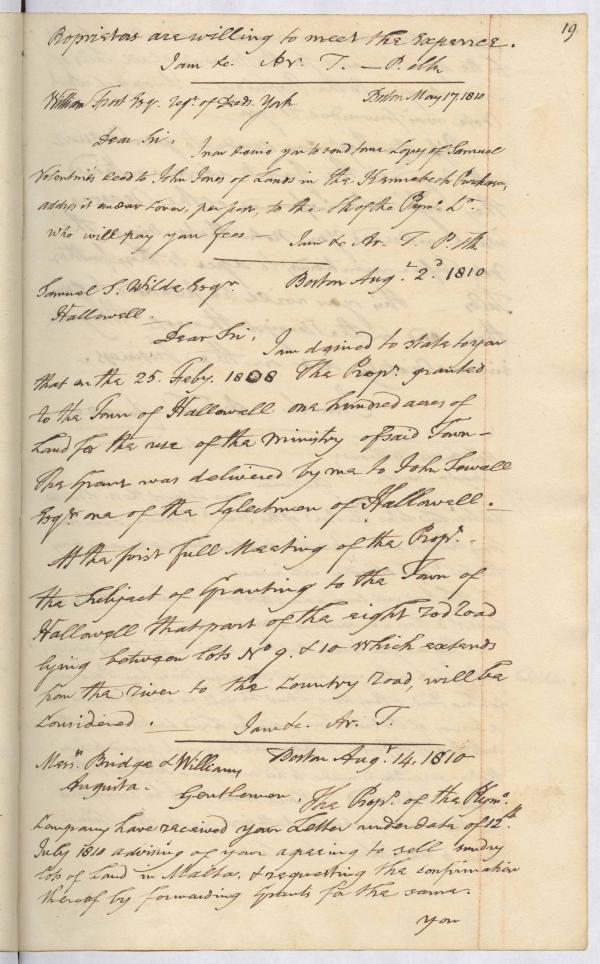 19
Proprietors are willing to meet the Expence.
I am &c. Ar. T. — P. Ck
William Frost Esq. Regr. of Deeds. York Boston May 17, 1810
Dear Sir,
you to send me a Copy of Samuel
Valentine's deed to John Jones of Lands in the Kennebeck Purchase,
address it under Cover, per post, to the Ck of the Plymo. Co.
who will pay your fees — I am &c Ar. T. P. Ck
Boston Augt. 2d. 1810
Samuel S. Wilde Esqr.
Hallowell.
Dear Sir, I am desired to state to you
that on the 25. Feby. 1808 The Propr. granted
to the Town of Hallowell one hundred acres of
Land for the use of the ministry of said Town —
The Grant was delivered by me to John Sewall
Esqr. one of the Selectmen of Hallowell. —
At the first full Meeting of the Propr. —
the Subject of Granting to the Town of
Hallowell that part of the eight rod road
lying between lots No 9. & 10 which extends
from the river to the Country road, will be
Considered. I am &c. Ar. T.
Messrs. Bridge & Williams Boston Augt. 14, 1810
Augusta.
Gentlemen, The Propr. of the Plymo.
Company have received your Letter under date of 12th.
July 1810 advising of your agreeing to sell sundry
lots of land in Malta, & requesting the confirmation
thereof by forwarding Grants for the same.
You